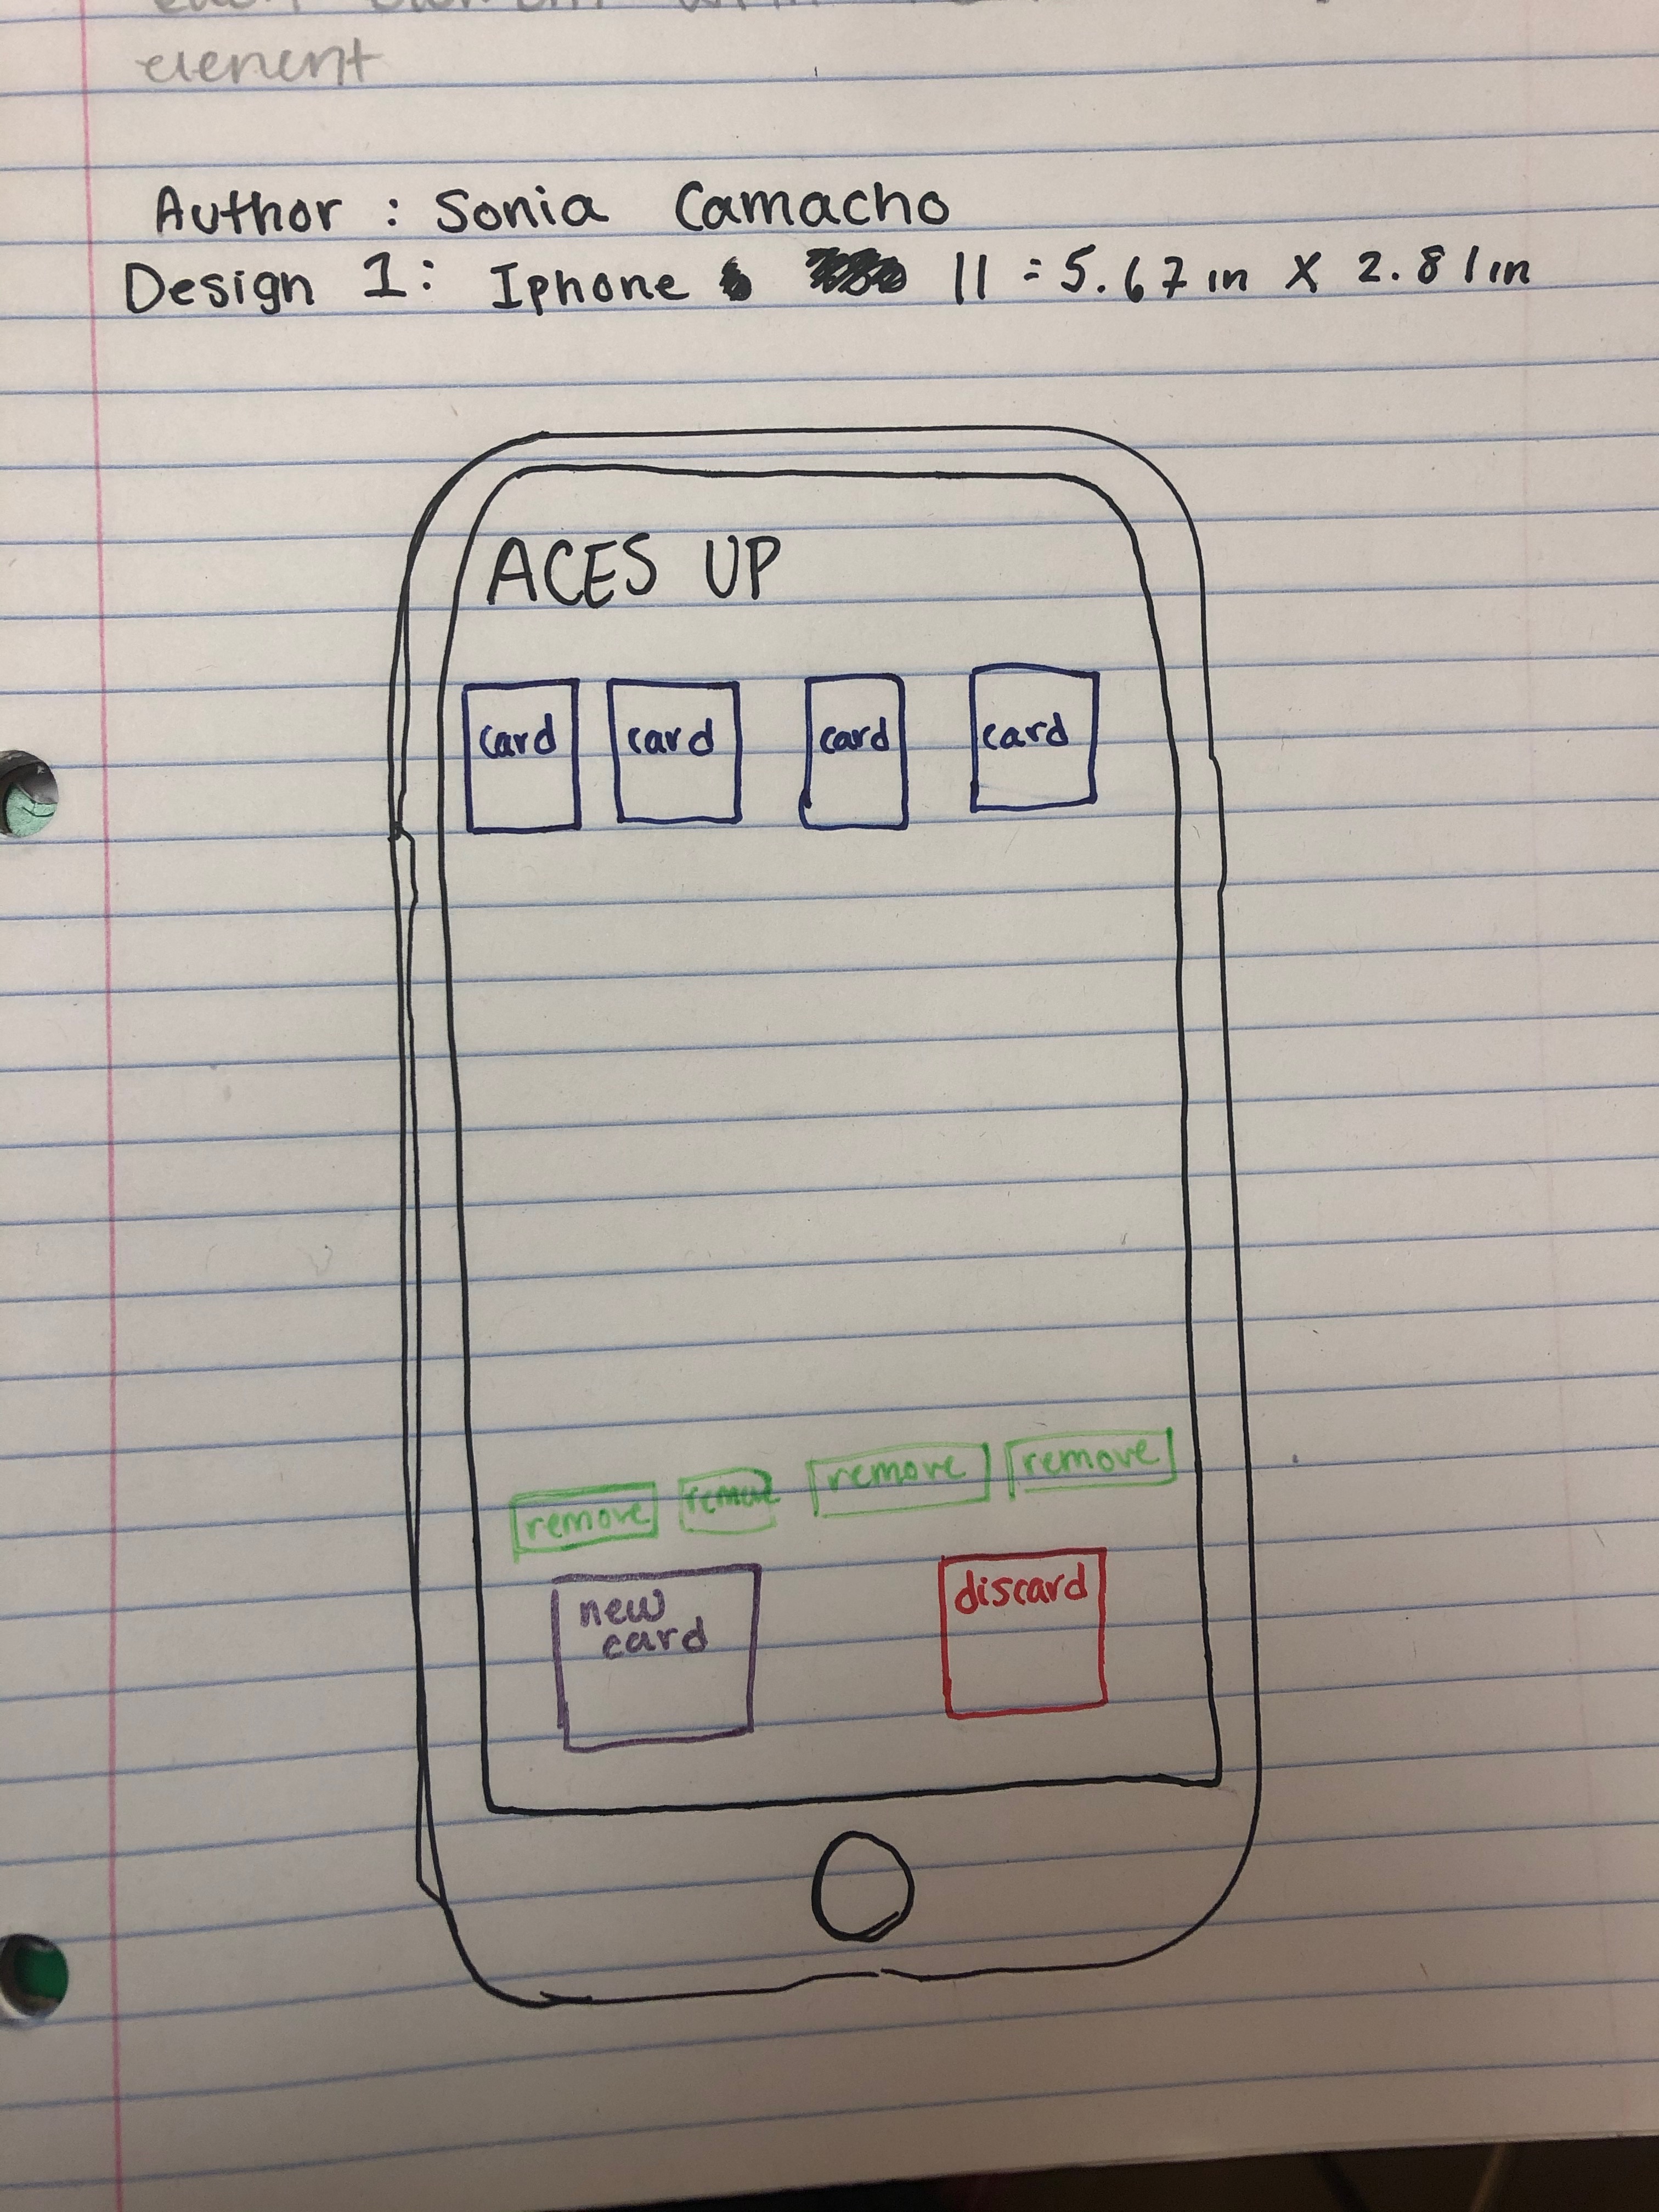 element
Author : Sonia Camacho
Design 1: Iphone 11 = 5.67 in X 2.81 in
ACES UP
card card card card
remove remove remove remove
new
card
discard